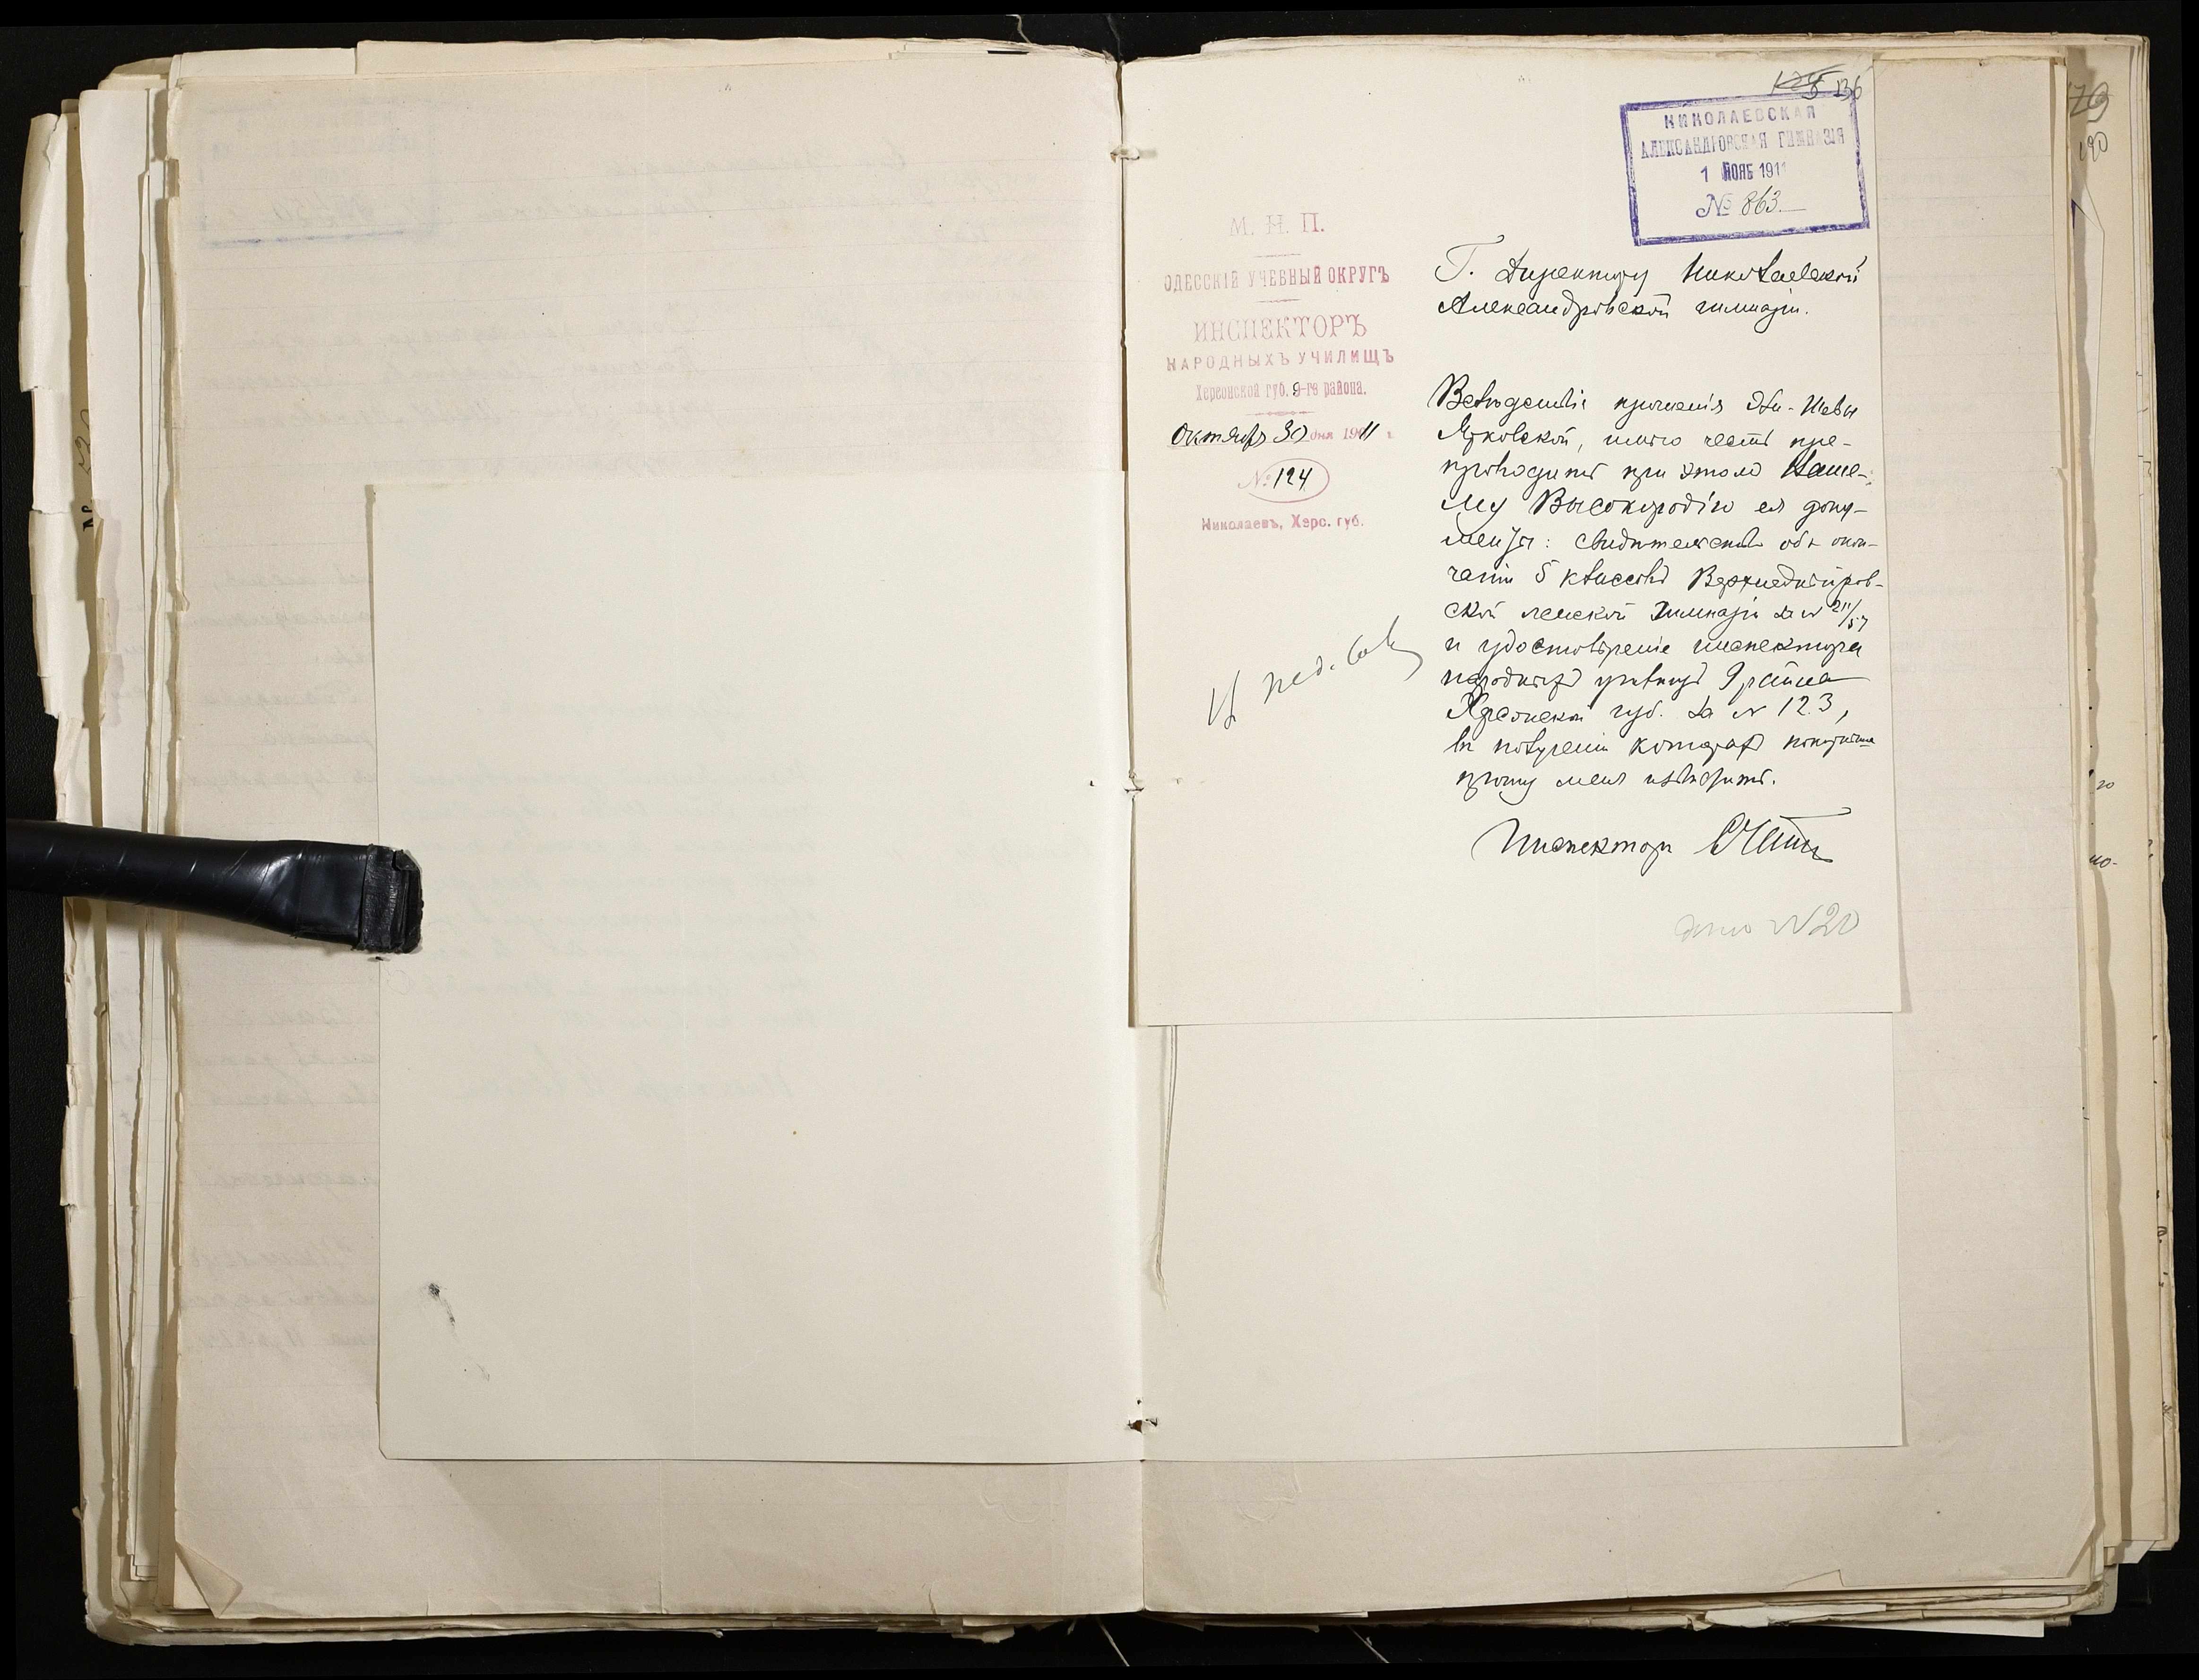 136
НИКОЛАЕВСКАЯ
АЛЕКСАНДРОВСКАЯ ГИМНАЗІЯ
1 НОЯБ 1911
№ 863.
М. Н. П.
ОДЕССКІЙ УЧЕБНЫЙ ОКРУГЪ
ИНСПЕКТОРЪ
НАРОДНЫХЪ УЧИЛИЩЪ
Херсонской губ. 9-го района.
Октября 30 дня 1911 г.
№ 124
Николаевъ, Херс. губ.
Г. Директору Николаевской
Александровской гимназіи.
Вслѣдствіе прошенія
имѣю честь пре-
проводить при этомъ Ваше-
му Высокородію ея доку-
менты: свидѣтельство объ окон-
чаніи 5 классовъ Верхнеднѣпров-
ской женской гимназіи за №
и удостовѣреніе инспектора
народныхъ училищъ 9 района
Херсонской губ. за № 123,
въ полученіи которыхъ покорнѣйше
прошу меня увѣдомить.
Инспекторъ
Въ пед. Сов.
дѣло № 20